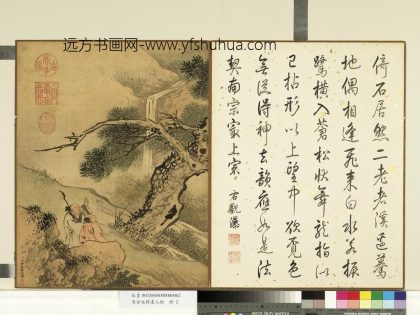 远方书画网-www.yfshuhua.com
倚石居然二老者溪邊驀
地偶相逢飛來白水若振
鷺橫入蒼松狀舞龍指以
已拈形以上望中欲覓色
無從得神去韻應如是法
契南宗最上宗
右觀瀑